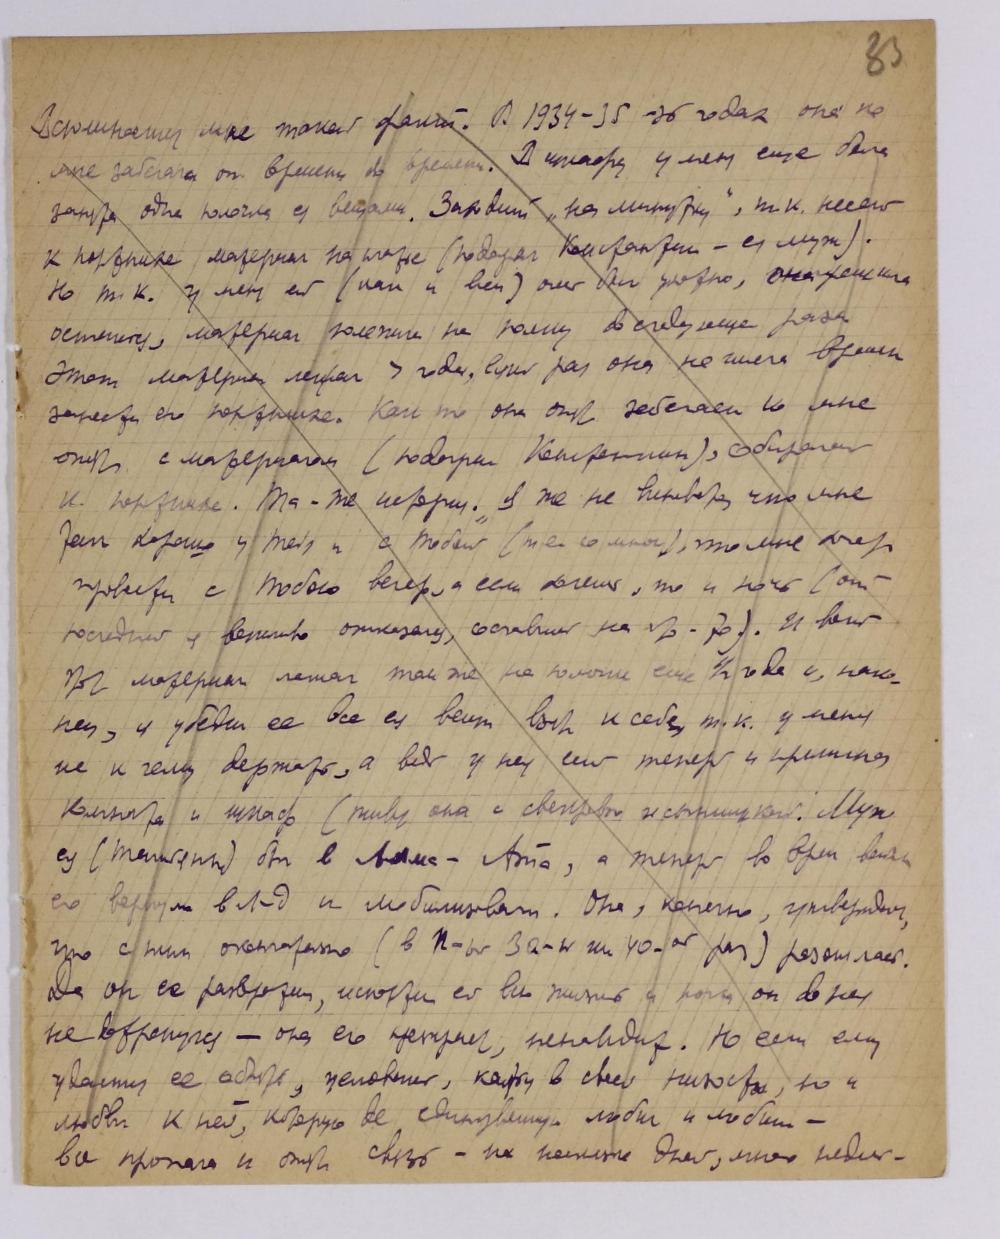 83
Вспоминается мне такой факт. В 1934-35-36 годах она ко
мне забегала от времени до времени. В шкафу у меня еще была
занята одна полочка ея вещами. Заходит „на минутку", т.к. несет
к портнихе материал на платье (подарил Константин - ея муж).
Но т.к. у меня ей (как и всем) очень было уютно, она решила
остаться, материал положила на полку до следующего раза
Этот материал лежал года, раз она не имела времени
занести его портнихе. Как то она опять забегает ко мне
опять с материалом (подарил Константин), собирается
к портнихе. Та-же история. „Я же не виновата, что мне
так хорошо у тебя и с тобой (т.е. со мной), что мне хочется
провести с тобою вечер, а если хочешь, то и ночь (от
последней я вежливо отказался, сославшись на то-то). И вот
этот материал лежал также на полочке еще 1/2 года и, нако-
нец, я убедил ее все ея вещи взять к себе, т.к. у меня
не к чему держать, а ведь у нея есть теперь и приличная
комната и шкаф (живет она с свекровью и сынишкой. Муж
ея (Татьяны) был в Алма-Ата, а теперь во время войны
его вернули в Л-д и мобилизовали. Она, конечно, утверждает,
что с ним окончательно (в n-ый 30-й или 40-ой раз) разошлась.
Да он ее развратил, испортил ей всю жизнь и пока он до нея
не дотронулся — она его презирает, ненавидит. Но если ему
удается ее обнять, целовать, каясь в своей низости, но и
любви к ней, которую де единственную любил и любит —
все пропало и опять связь - на несколько дней, много недель-